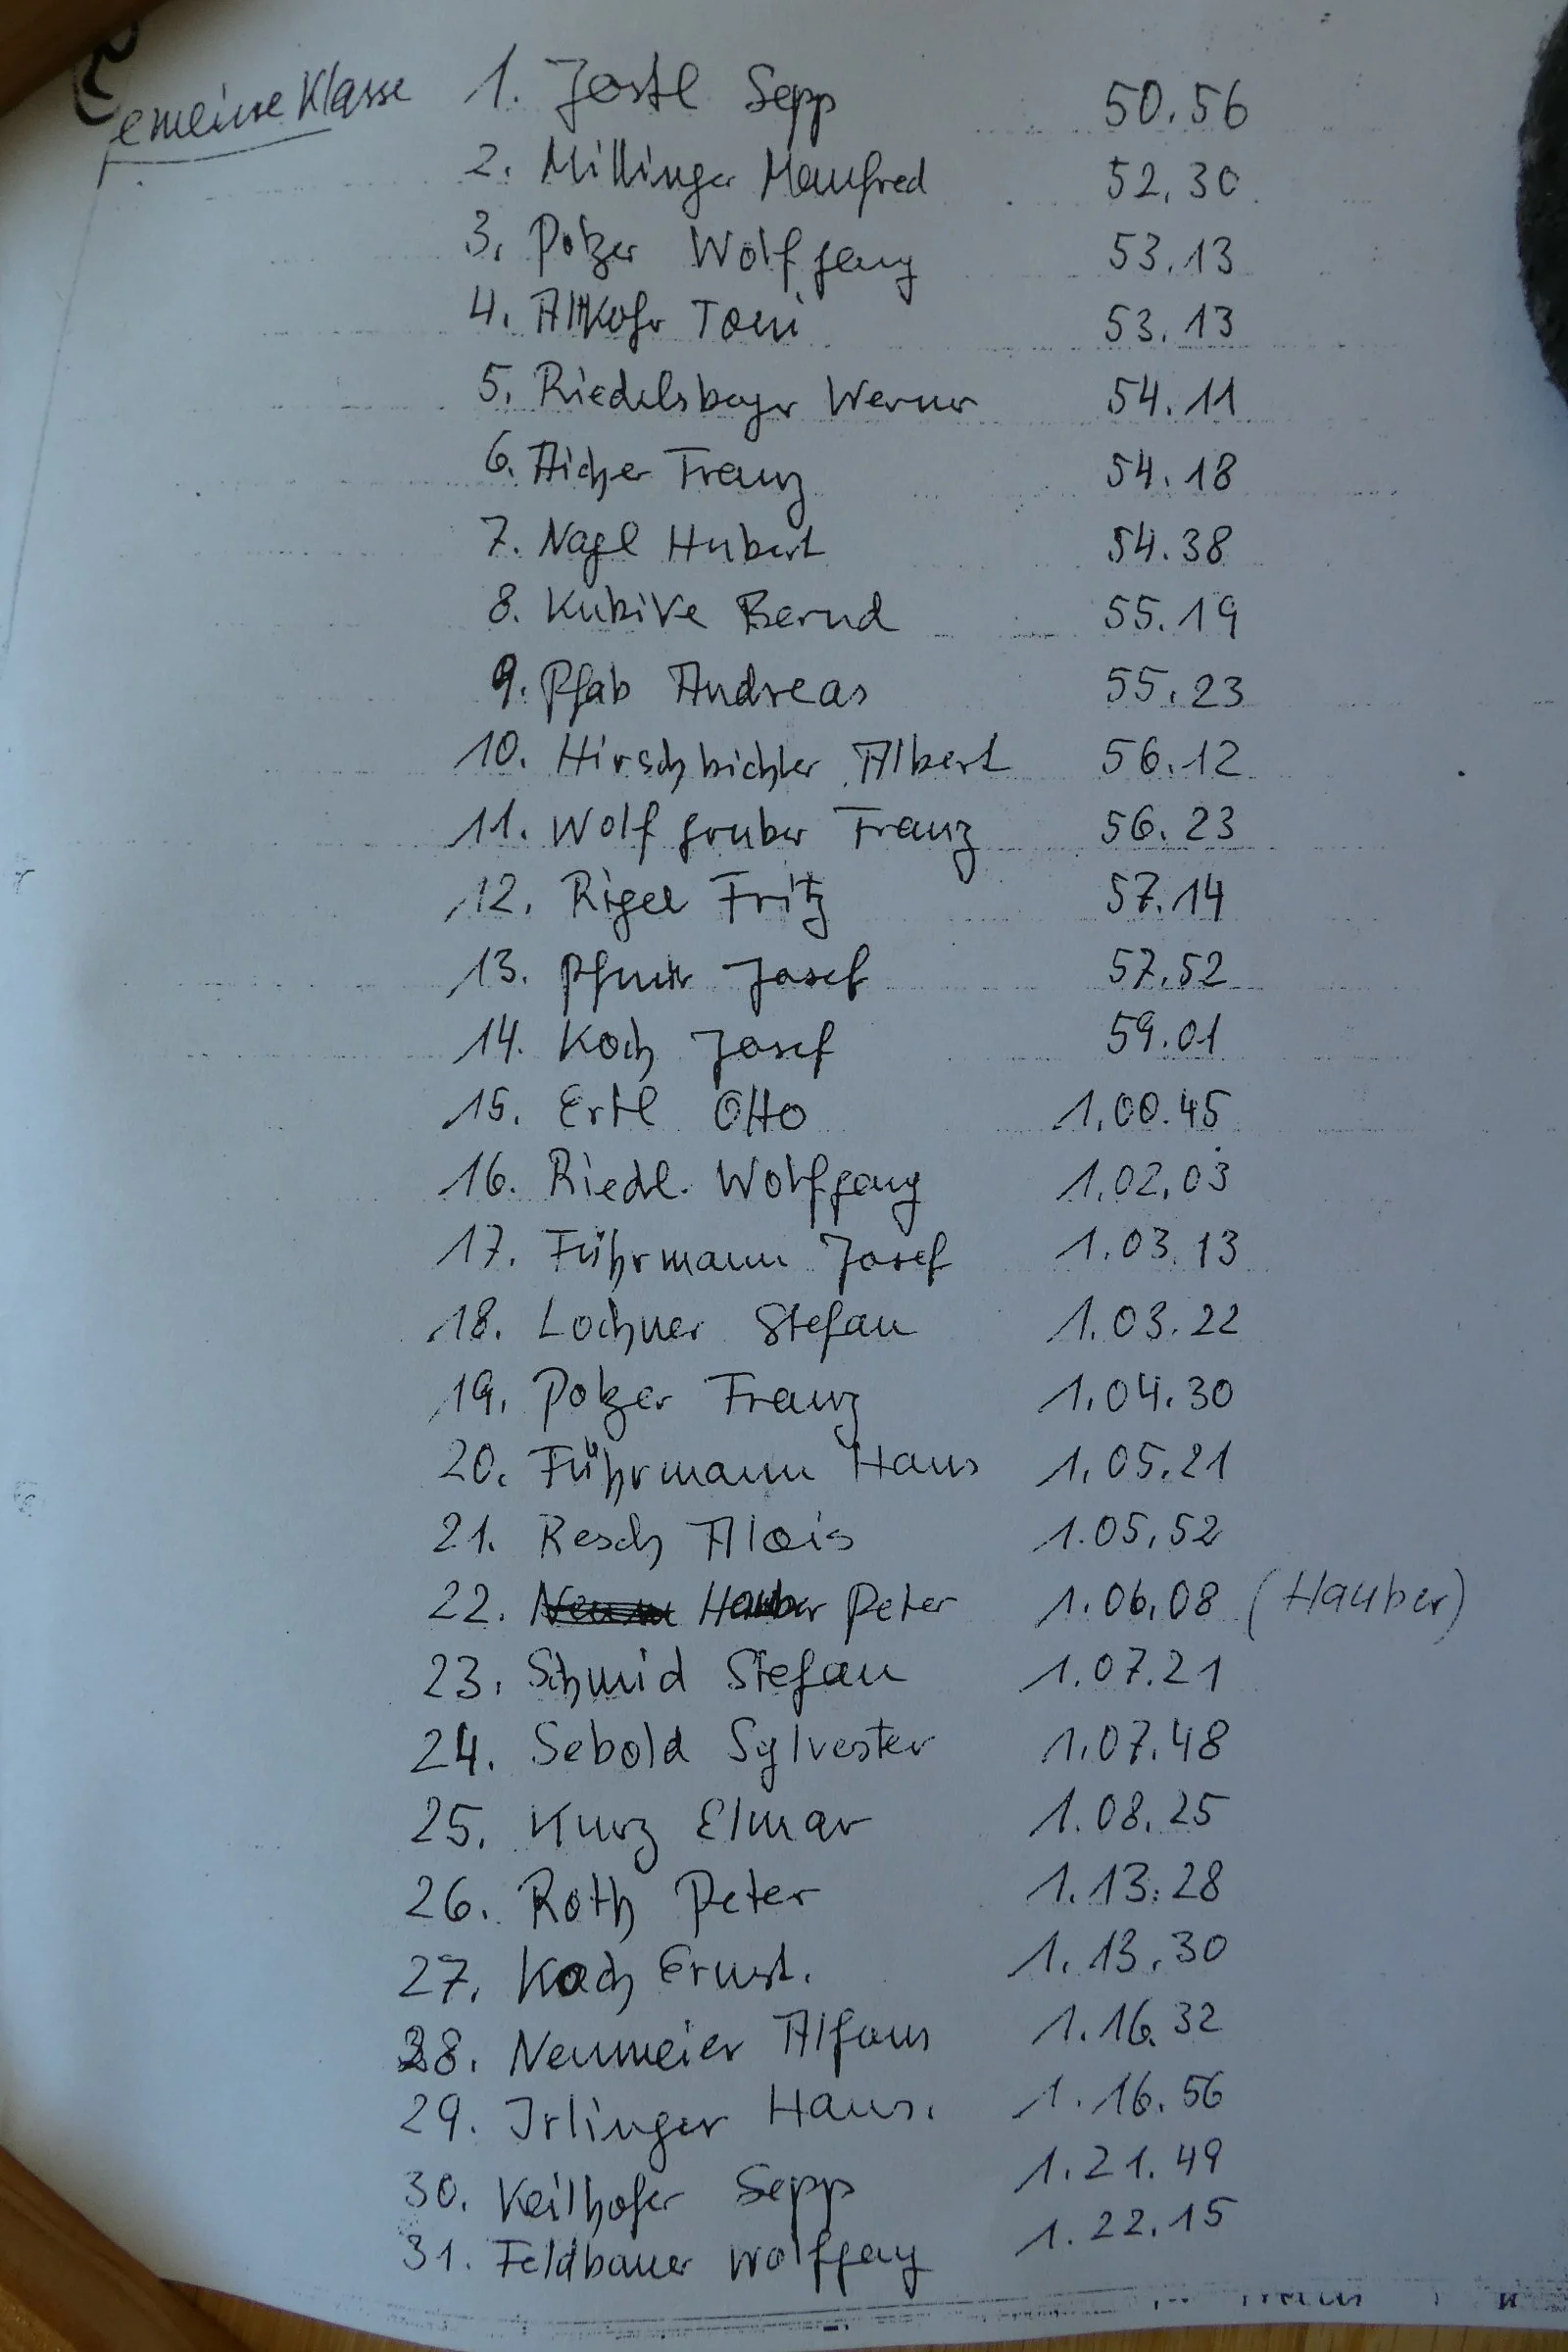 Gemeine Klasse
1. Jostl Sepp 50.56
2. Millinger Manfred 52.30
3. Polzer Wolfgang 53.13
4. Altkofr Toni 53.13
5. Riedelsbeger Werner 54.11
6. Aicher Franz 54.18
7. Nagl Hubert 54.38
8. Kubike Bernd 55.19
9. Pfab Andreas 55.23
10. Hirschbichler Albert 56.12
11. Wolfgruber Franz 56.23
12. Rigel Fritz 57.14
13. Pfnür Josef 57.52
14. Koch Josef 59.01
15. Ertl Otto 1.00.45
16. Riedl. Wolfgang 1.02.03
17. Führmann Josef 1.03.13
18. Lochner Stefan 1.03.22
19. Polzer Franz 1.04.30
20. Führmann Hans 1.05.21
21. Resch Alois 1.05.52
22. Hauber Peter 1.06.08 (Hauber)
23. Schmid Stefan 1.07.21
24. Sebold Sylvester 1.07.48
25. Kurz Elmar 1.08.25
26. Roth Peter 1.13.28
27. Koch Ernst. 1.13.30
28. Neumeier Alfons 1.16.32
29. Irlinger Hans. 1.16.56
30. Keilhofer Sepp 1.21.49
31. Feldbauer Wolfgang 1.22.15